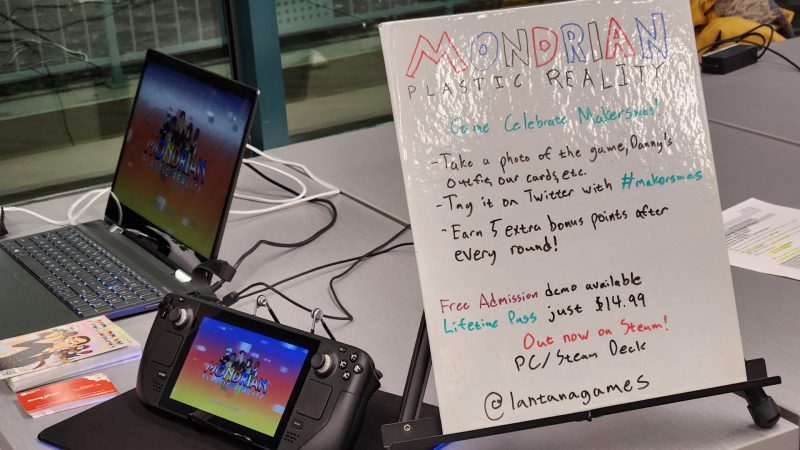 MONDRIAN
PLASTIC REALITY
Come Celebrate Makersmas!
- Take a photo of the game, Danny's
outfit, our cards, etc.
- Tag it on Twitter with #makersmas
- Earn 5 extra bonus points after
every round!
Free Admission demo available
Lifetime Pass just $14.99
Out now on Steam!
PC/Steam Deck
@lantanagames
MONDRIAN
PLASTIC REALITY
MONDRIAN
PLASTIC REALITY